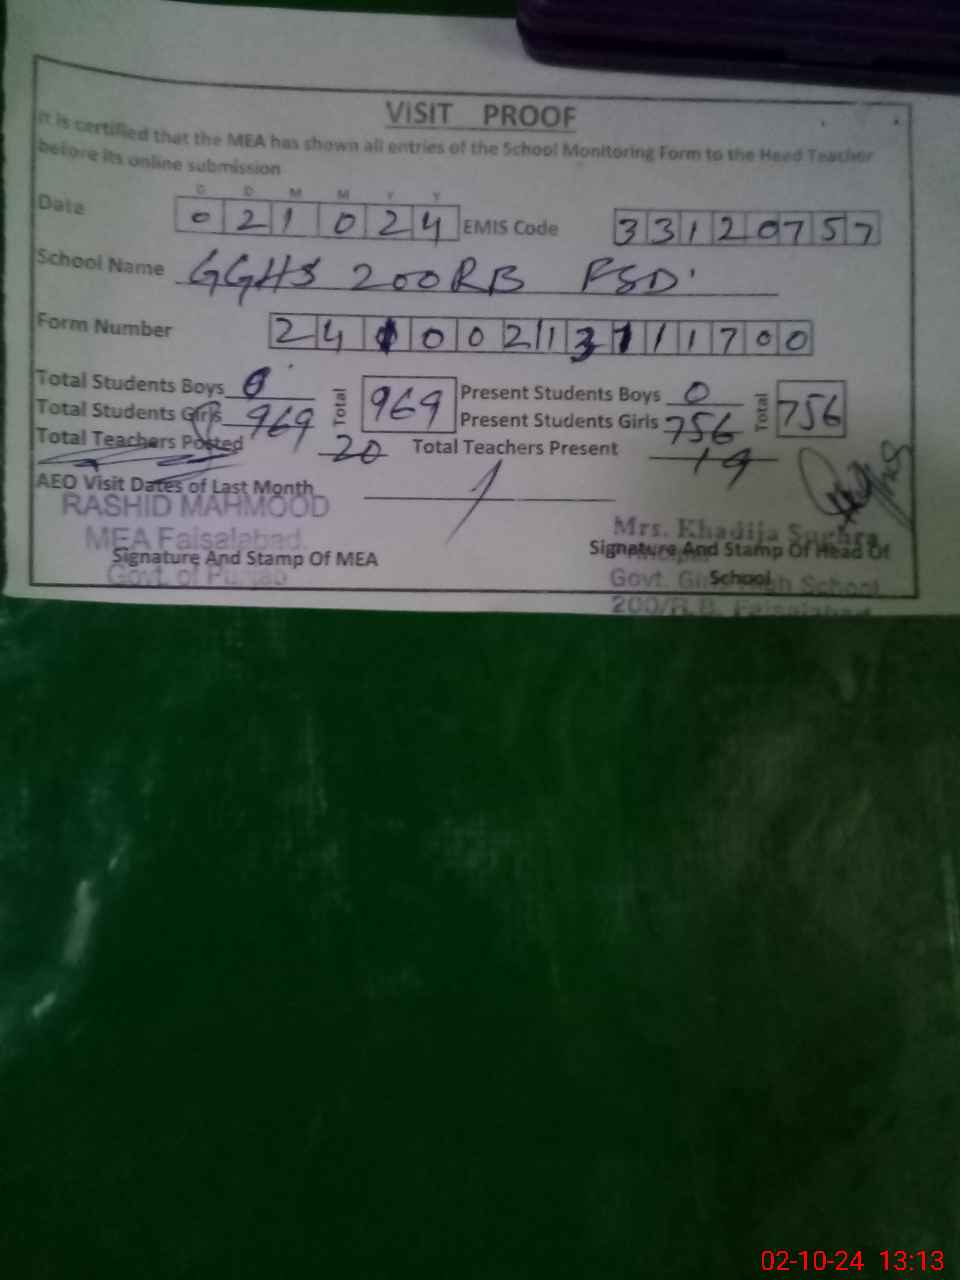 VISIT PROOF
It is certified that the MEA has shown all entries of the School Monitoring Form to the Head Teacher
before its online submission
D D M M Y Y
Date 0 2 1 0 2 4 EMIS Code 3 3 1 2 0 7 5 7
School Name GGHS 200RB FSD
Form Number 2 4 1 0 0 2 1 3 1 1 1 7 0 0
Total Students Boys 0 Total 969 Present Students Boys 0 Total 756
Total Students Girls 969 Present Students Girls 756
Total Teachers Posted 20 Total Teachers Present 19
AEO Visit Dates of Last Month
RASHID MAHMOOD
MEA Faisalabad
Signature And Stamp Of MEA
Govt. of Punjab
Mrs. Khadija Sughra
Signature And Stamp Of Head Of
School
Govt. Girls High School
200/R.B. Faisalabad
02-10-24 13:13